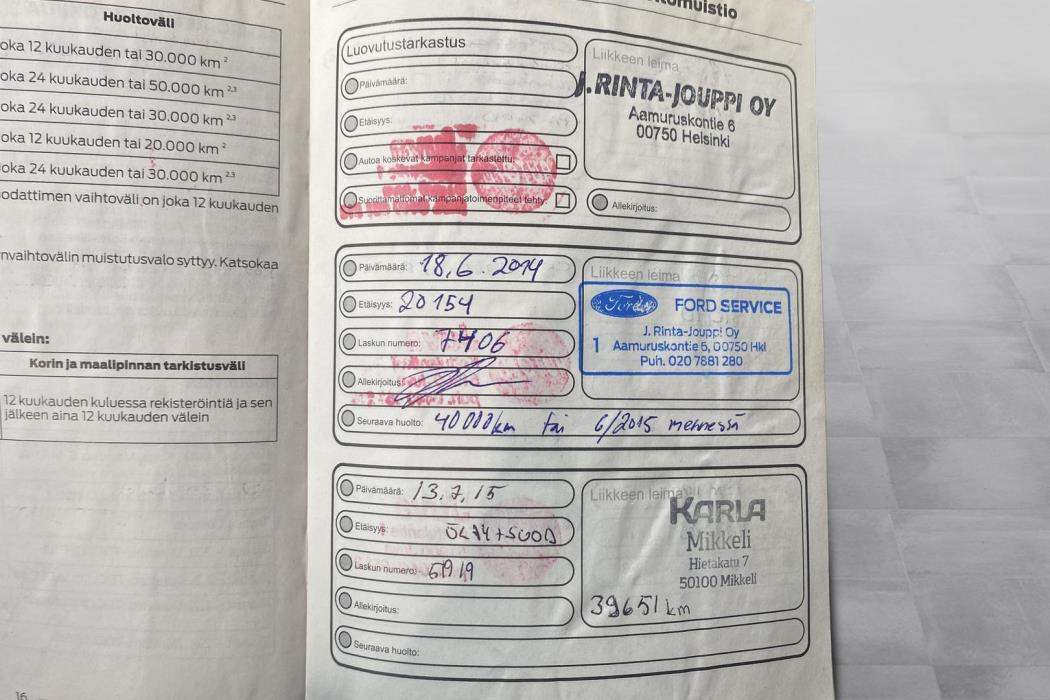 Huoltoväli
oka 12 kuukauden tai 30.000 km ²
oka 24 kuukauden tai 50.000 km ²˒³
oka 24 kuukauden tai 30.000 km ²˒³
oka 12 kuukauden tai 20.000 km ²
oka 24 kuukauden tai 30.000 km ²˒³
odattimen vaihtoväli on joka 12 kuukauden
nvaihtovälin muistutusvalo syttyy. Katsokaa
välein:
Korin ja maalipinnan tarkistusväli
12 kuukauden kuluessa rekisteröintiä ja sen
jälkeen aina 12 kuukauden välein
16
Luovutustarkastus
Päivämäärä:
Etäisyys:
Autoa koskevat kampanjat tarkastettu:
Suorittamattomat kampanjatoimenpiteet tehty:
Liikkeen leima
J. RINTA-JOUPPI OY
Aamuruskontie 6
00750 Helsinki
Allekirjoitus:
Päivämäärä: 18.6.2014
Etäisyys: 20154
Laskun numero: 7406
Allekirjoitus:
Seuraava huolto: 40000km tai 6/2015 mennessä
Liikkeen leima
Ford FORD SERVICE
J. Rinta-Jouppi Oy
1 Aamuruskontie 6, 00750 Hki
Puh. 020 7881 280
Päivämäärä: 13.7.15
Etäisyys:
Laskun numero: 5919
Allekirjoitus:
Seuraava huolto:
Liikkeen leima
KARLA
Mikkeli
Hietakatu 7
50100 Mikkeli
39651 km